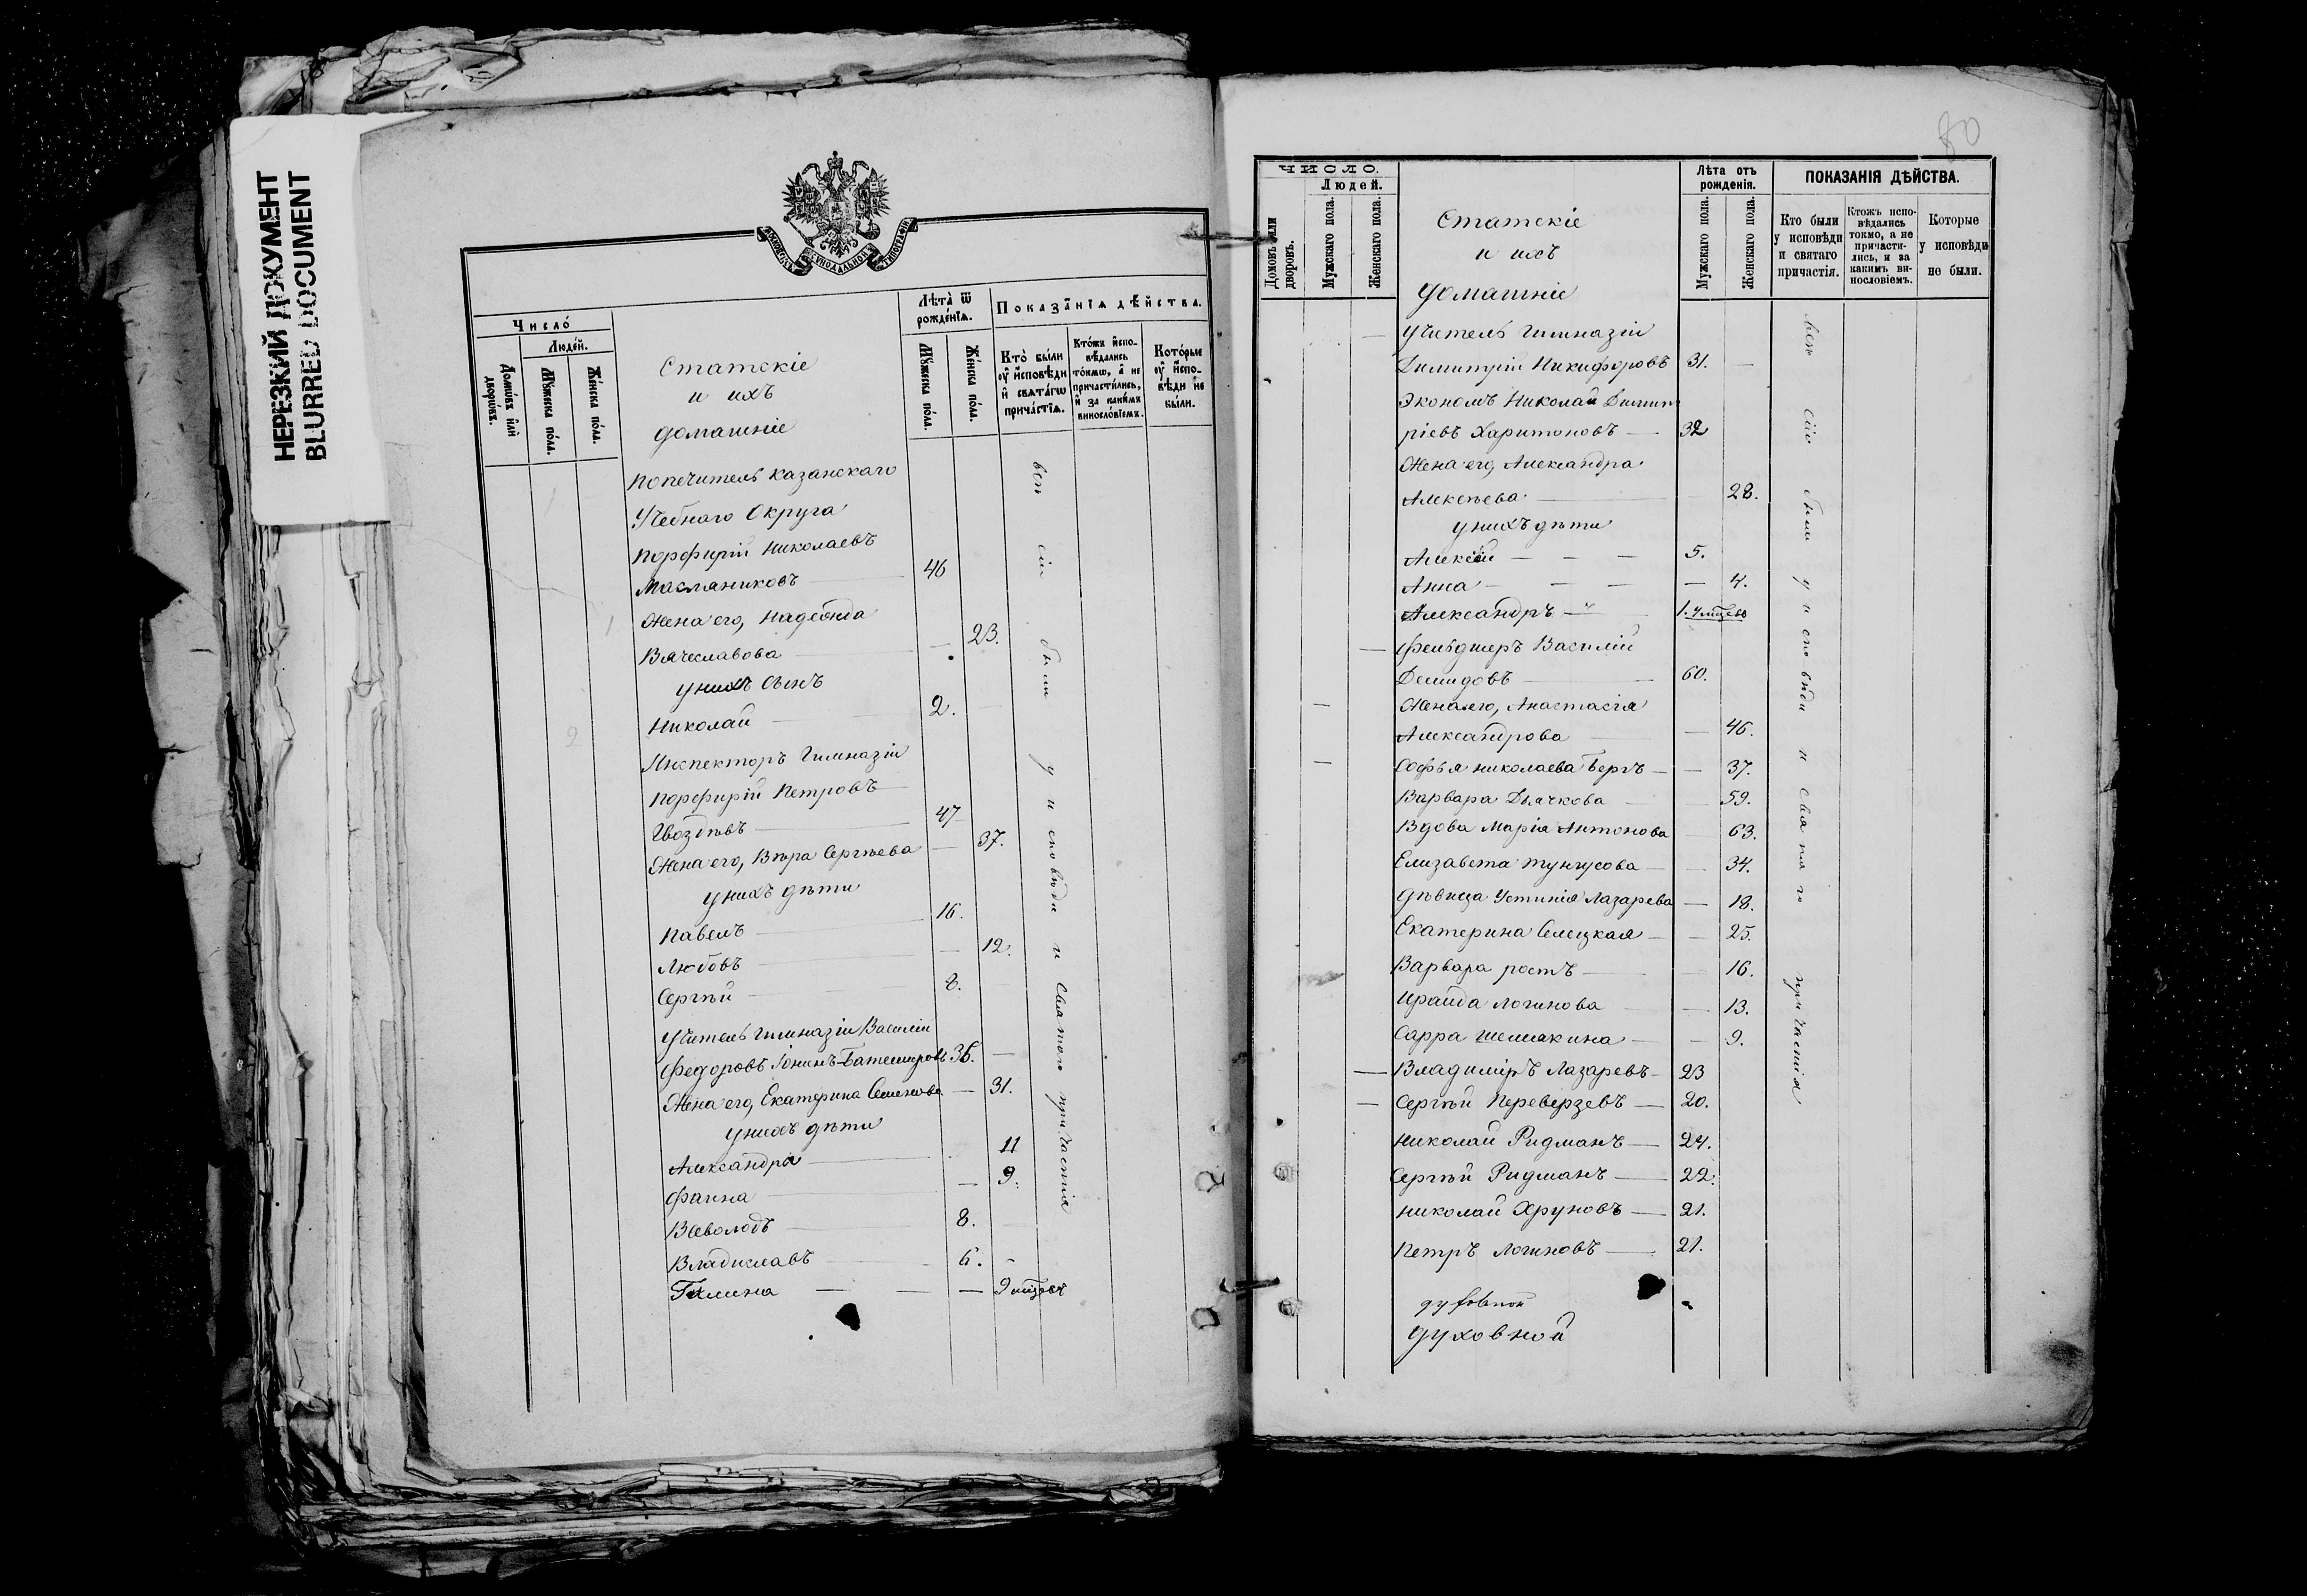 НЕРЕЗКИЙ ДОКУМЕНТ
BLURRED DOCUMENT
МОСКОВСК. СУНОДАЛЬНОЙ ТИПОГРАФІИ
Число́
Людей.
Домѡвъ и҆лѝ дворѡвъ.
Мꙋжеска пола.
Женска пола.
Статскіе
и ихъ
домашніе
Лѣта̀ ѿ рожде́нїѧ.
Мꙋжеска пола.
Женска пола.
Показа̑нїѧ дѣ́йства.
Кто̀ бы́ли ᲂу҆ и҆сповѣди и҆ свѧта́гѡ прича́стїѧ.
Кто́жъ и҆спо-вѣдались то́кмѡ, а҆ не причасти́лись, и҆ за каки́мъ винносло́вїемъ.
Кото́рые ᲂу҆ и҆спо-вѣди не бы́ли.
Попечитель Казанскаго
Учебнаго Округа
Порфирій Николаевъ
Масляниковъ 46
Жена его, Надежда
Вячеславова — 23.
у нихъ сынъ
Николай 2. —
Инспекторъ Гимназіи
Порфирій Петровъ
Гвоздевъ 47
Жена его, Вѣра Сергѣева — 37.
у нихъ дѣти
Павелъ 16.
Любовь — 12.
Сергѣй 8. —
Учитель Гимназіи Василій
Федоровъ Іонинъ-Батешеровъ 36. —
Жена его, Екатерина Семенова — 31.
у нихъ дѣти
Александра 11
Фаина — 9.
Всеволодъ 8.
Владиславъ 6. -
Галина — — — 9 мѣсяц.
всѣ сіи были у исповѣди и святаго причастія
80
ЧИСЛО.
Людей.
Домовъ или дворовъ.
Мужскаго пола.
Женскаго пола.
Статскіе
и ихъ
домашніе
Лѣта отъ рожденія.
Мужскаго пола.
Женскаго пола.
ПОКАЗАНІЯ ДѢЙСТВА.
Кто были у исповѣди и святаго причастія.
Ктожъ испо-вѣдались токмо, а не причасти-лись, и за какимъ ви-нословіемъ.
Которые у исповѣди не были.
Учитель Гимназіи
Димитрій Никифоровъ 31. —
Экономъ Николай Димит
ріевъ Харитоновъ — 32
Жена его, Александра
Алексѣева 28.
у нихъ дѣти
Алексѣй — — — 5.
Анна — — — — 4.
Александръ — 1.
Фельдшеръ Василій
Демидовъ 60.
Жена его, Анастасія
Александрова — 46.
Софья Николаева Бергъ — — 37.
Варвара Дьячкова 59.
Вдова Марія Антонова — 63.
Елизавета Тунусова — — 34.
Дѣвица Устинія Лазарева — 18.
Екатерина Селецкая — — 25.
Варвара ростъ — 16.
Ираида Логинова — 13.
Сарра Шемякина — — 9.
Владиміръ Лазаревъ — 23
Сергѣй Переверзевъ — 20.
Николай Ридманъ — 24.
Сергѣй Ридманъ — 22.
Николай Хруновъ — 21.
Петръ Логиновъ — 21.
духовной
духовной
всѣ сіи были у исповѣди и святаго причастія